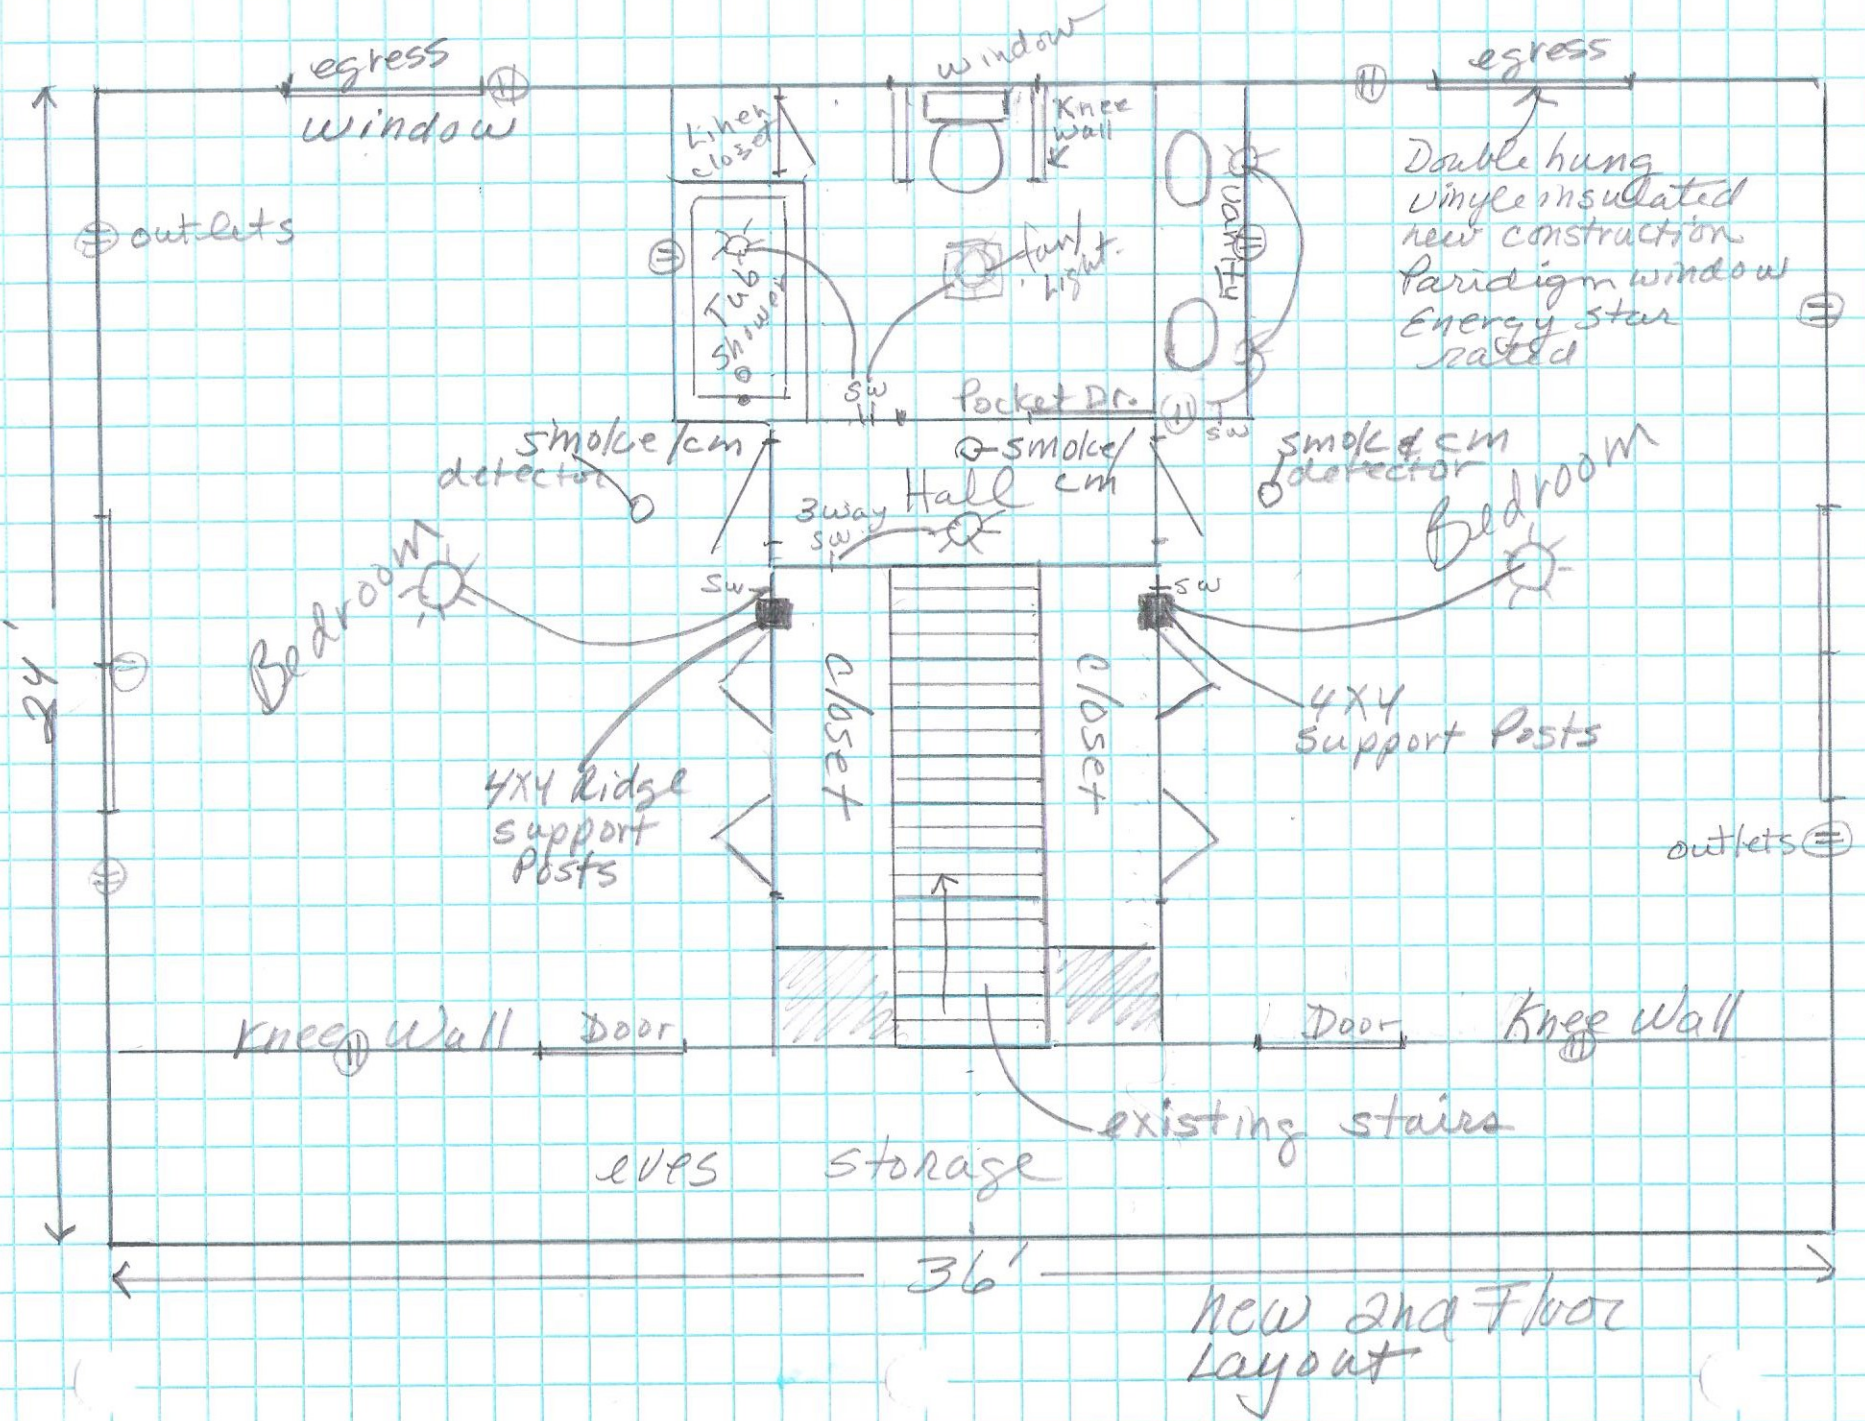 egress
window
window
egress
Linen
closet
Knee
wall
Double hung
vinyle insulated
new construction
Paridigm window
Energy Star
rated
outlets
Tub
shower
fan/
Light
vanity
sw
Pocket Dr.
sw
smoke/cm
detector
smoke/
cm
smoke cm
detector
Hall
3way
sw
Bedroom
Bedroom
sw
sw
24'
closet
closet
4x4 Ridge
support
Posts
4x4
support Posts
outlets
Knee Wall
Door
Door
Knee Wall
existing stairs
eves storage
36'
new 2nd Floor
Layout